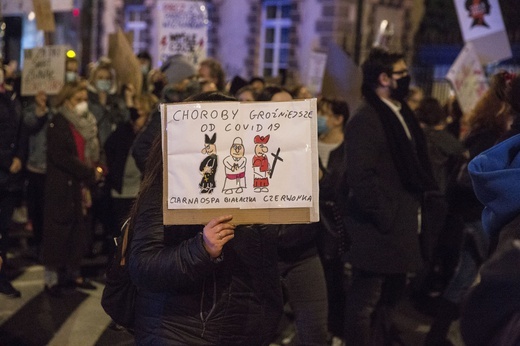 CHOROBY GROŹNIEJSZE
OD COVID 19
CZARNA OSPA BIAŁACZKA CZERWONKA